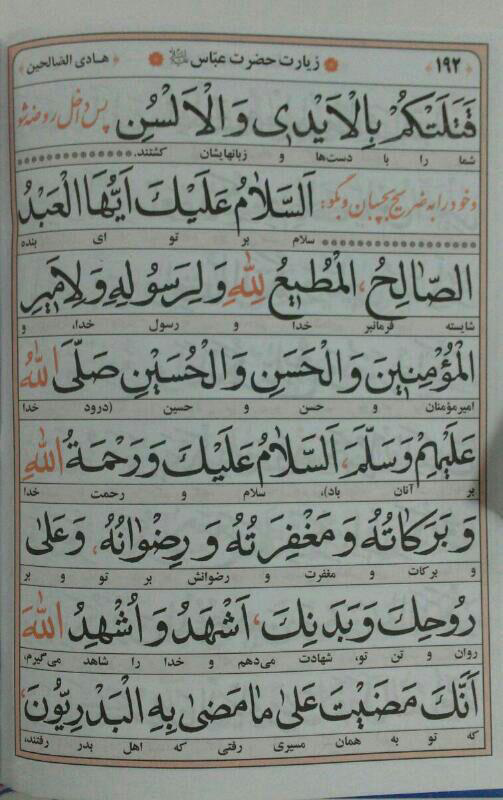 ۱۹۲ زیارت حضرت عباس هادی الصالحین
قَتَلَتْكُمْ بِالْاَیْدی وَالْاَلْسُنِ پس داخل روضه شو
شما را با دست‌ها و زبانهایشان کشتند.
و خود را به ضریح بچسبان و بگو: اَلسَّلامُ عَلَیْكَ اَیُّهَا الْعَبْدُ
سلام بر تو ای بنده
الصّالِحُ، الْمُطیعُ لِلّٰهِ وَلِرَسُولِهِ وَلِاَمیرِ
شایسته فرمانبر خدا و رسول خدا، و
الْمُؤْمِنینَ وَالْحَسَنِ وَالْحُسَیْنِ صَلَّی اللّٰهُ
امیرمؤمنان و حسن و حسین (درود خدا
عَلَیْهِمْ وَسَلَّمَ، اَلسَّلامُ عَلَیْكَ وَرَحْمَةُ اللّٰهِ
بر آنان باد)، سلام و رحمت خدا
وَ بَرَكاتُهُ وَ مَغْفِرَتُهُ وَ رِضْوانُهُ، وَعَلی
و برکات و مغفرت و رضوانش بر تو و بر
رُوحِكَ وَ بَدَنِكَ، اَشْهَدُ وَ اُشْهِدُ اللّٰهَ
روان و تن تو، شهادت می‌دهم و خدا را شاهد می‌گیرم،
اَنَّكَ مَضَیْتَ عَلی ما مَضی بِهِ الْبَدْرِیُّونَ،
که تو به همان مسیری رفتی که اهل بدر رفتند،